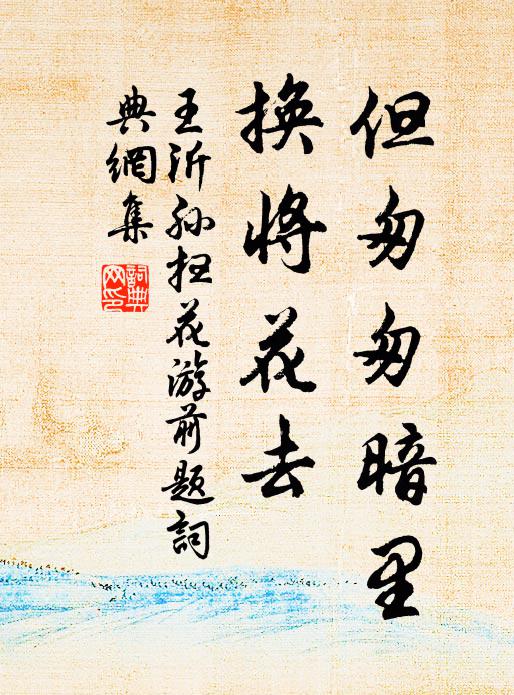 但匆匆暗里
换将花去
王沂孙扫花游前题詞
典網集
詞典网印